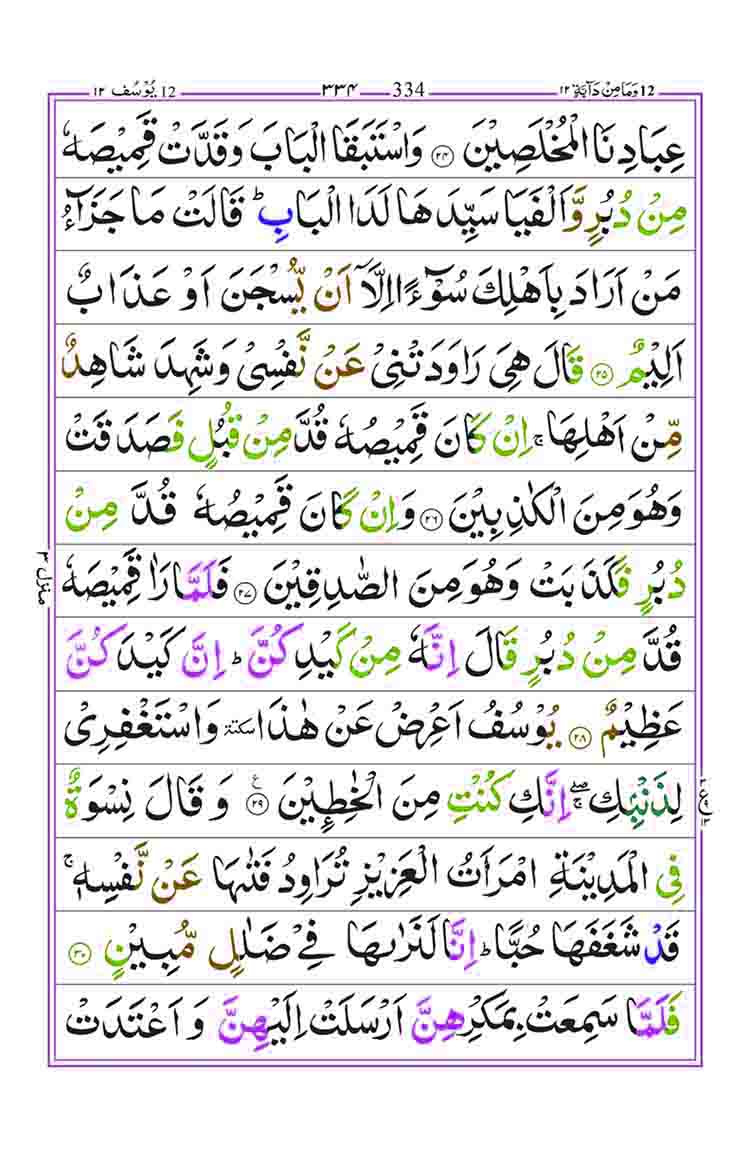 12 وَمَا مِنْ دَآبَّةٍ ١٢ 334 ٣٣٤ 12 يُوْسُف ١٢
عِبَادِنَا الْمُخْلَصِيْنَ ۝٢٤ وَاسْتَبَقَا الْبَابَ وَقَدَّتْ قَمِيْصَهٗ
مِنْ دُبُرٍ وَّاَلْفَيَا سَيِّدَهَا لَدَا الْبَابِ ؕ قَالَتْ مَا جَزَآءُ
مَنْ اَرَادَ بِاَهْلِكَ سُوْٓءًا اِلَّاۤ اَنْ يُّسْجَنَ اَوْ عَذَابٌ
اَلِيْمٌ ۝٢٥ قَالَ هِىَ رَاوَدَتْنِىْ عَنْ نَّفْسِىْ وَشَهِدَ شَاهِدٌ
مِّنْ اَهْلِهَا ۚ اِنْ كَانَ قَمِيْصُهٗ قُدَّ مِنْ قُبُلٍ فَصَدَقَتْ
وَهُوَ مِنَ الْكٰذِبِيْنَ ۝٢٦ وَاِنْ كَانَ قَمِيْصُهٗ قُدَّ مِنْ
دُبُرٍ فَكَذَبَتْ وَهُوَ مِنَ الصّٰدِقِيْنَ ۝٢٧ فَلَمَّا رَاٰ قَمِيْصَهٗ
قُدَّ مِنْ دُبُرٍ قَالَ اِنَّهٗ مِنْ كَيْدِكُنَّ ؕ اِنَّ كَيْدَكُنَّ
عَظِيْمٌ ۝٢٨ يُوْسُفُ اَعْرِضْ عَنْ هٰذَا سكتة وَاسْتَغْفِرِىْ
لِذَنْۢبِكِ ۖۚ اِنَّكِ كُنْتِ مِنَ الْخٰطِـِٕيْنَ ۝٢٩ ع وَ قَالَ نِسْوَةٌ
فِى الْمَدِيْنَةِ امْرَاَتُ الْعَزِيْزِ تُرَاوِدُ فَتٰىهَا عَنْ نَّفْسِهٖ ۚ
قَدْ شَغَفَهَا حُبًّا ؕ اِنَّا لَنَرٰىهَا فِىْ ضَلٰلٍ مُّبِيْنٍ ۝٣٠
فَلَمَّا سَمِعَتْ بِمَكْرِهِنَّ اَرْسَلَتْ اِلَيْهِنَّ وَ اَعْتَدَتْ
منزل ٣